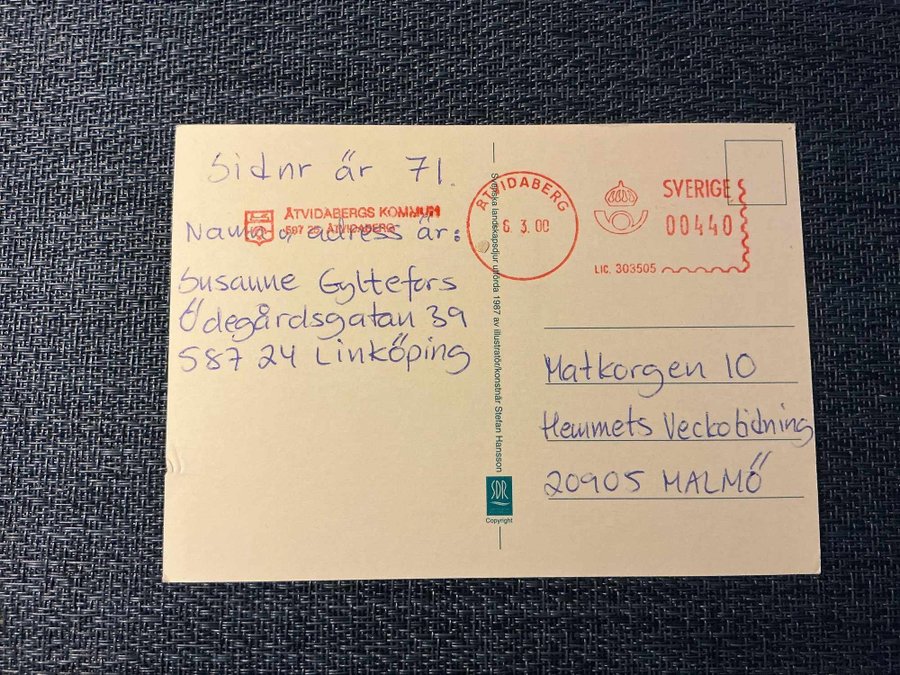 Sidnr är 71.
ÅTVIDABERGS KOMMUN
597 25 ÅTVIDABERG
Namn o adress är:
Susanne Gyltefors
Ödegårdsgatan 39
587 24 Linköping
Svenska landskapsdjur utförda 1987 av illustratör/konstnär Stefan Hansson
SDR
Copyright
ÅTVIDABERG
6.3.00
SVERIGE
00440
LIC. 303505
Matkorgen 10
Hemmets Veckotidning
20905 MALMÖ